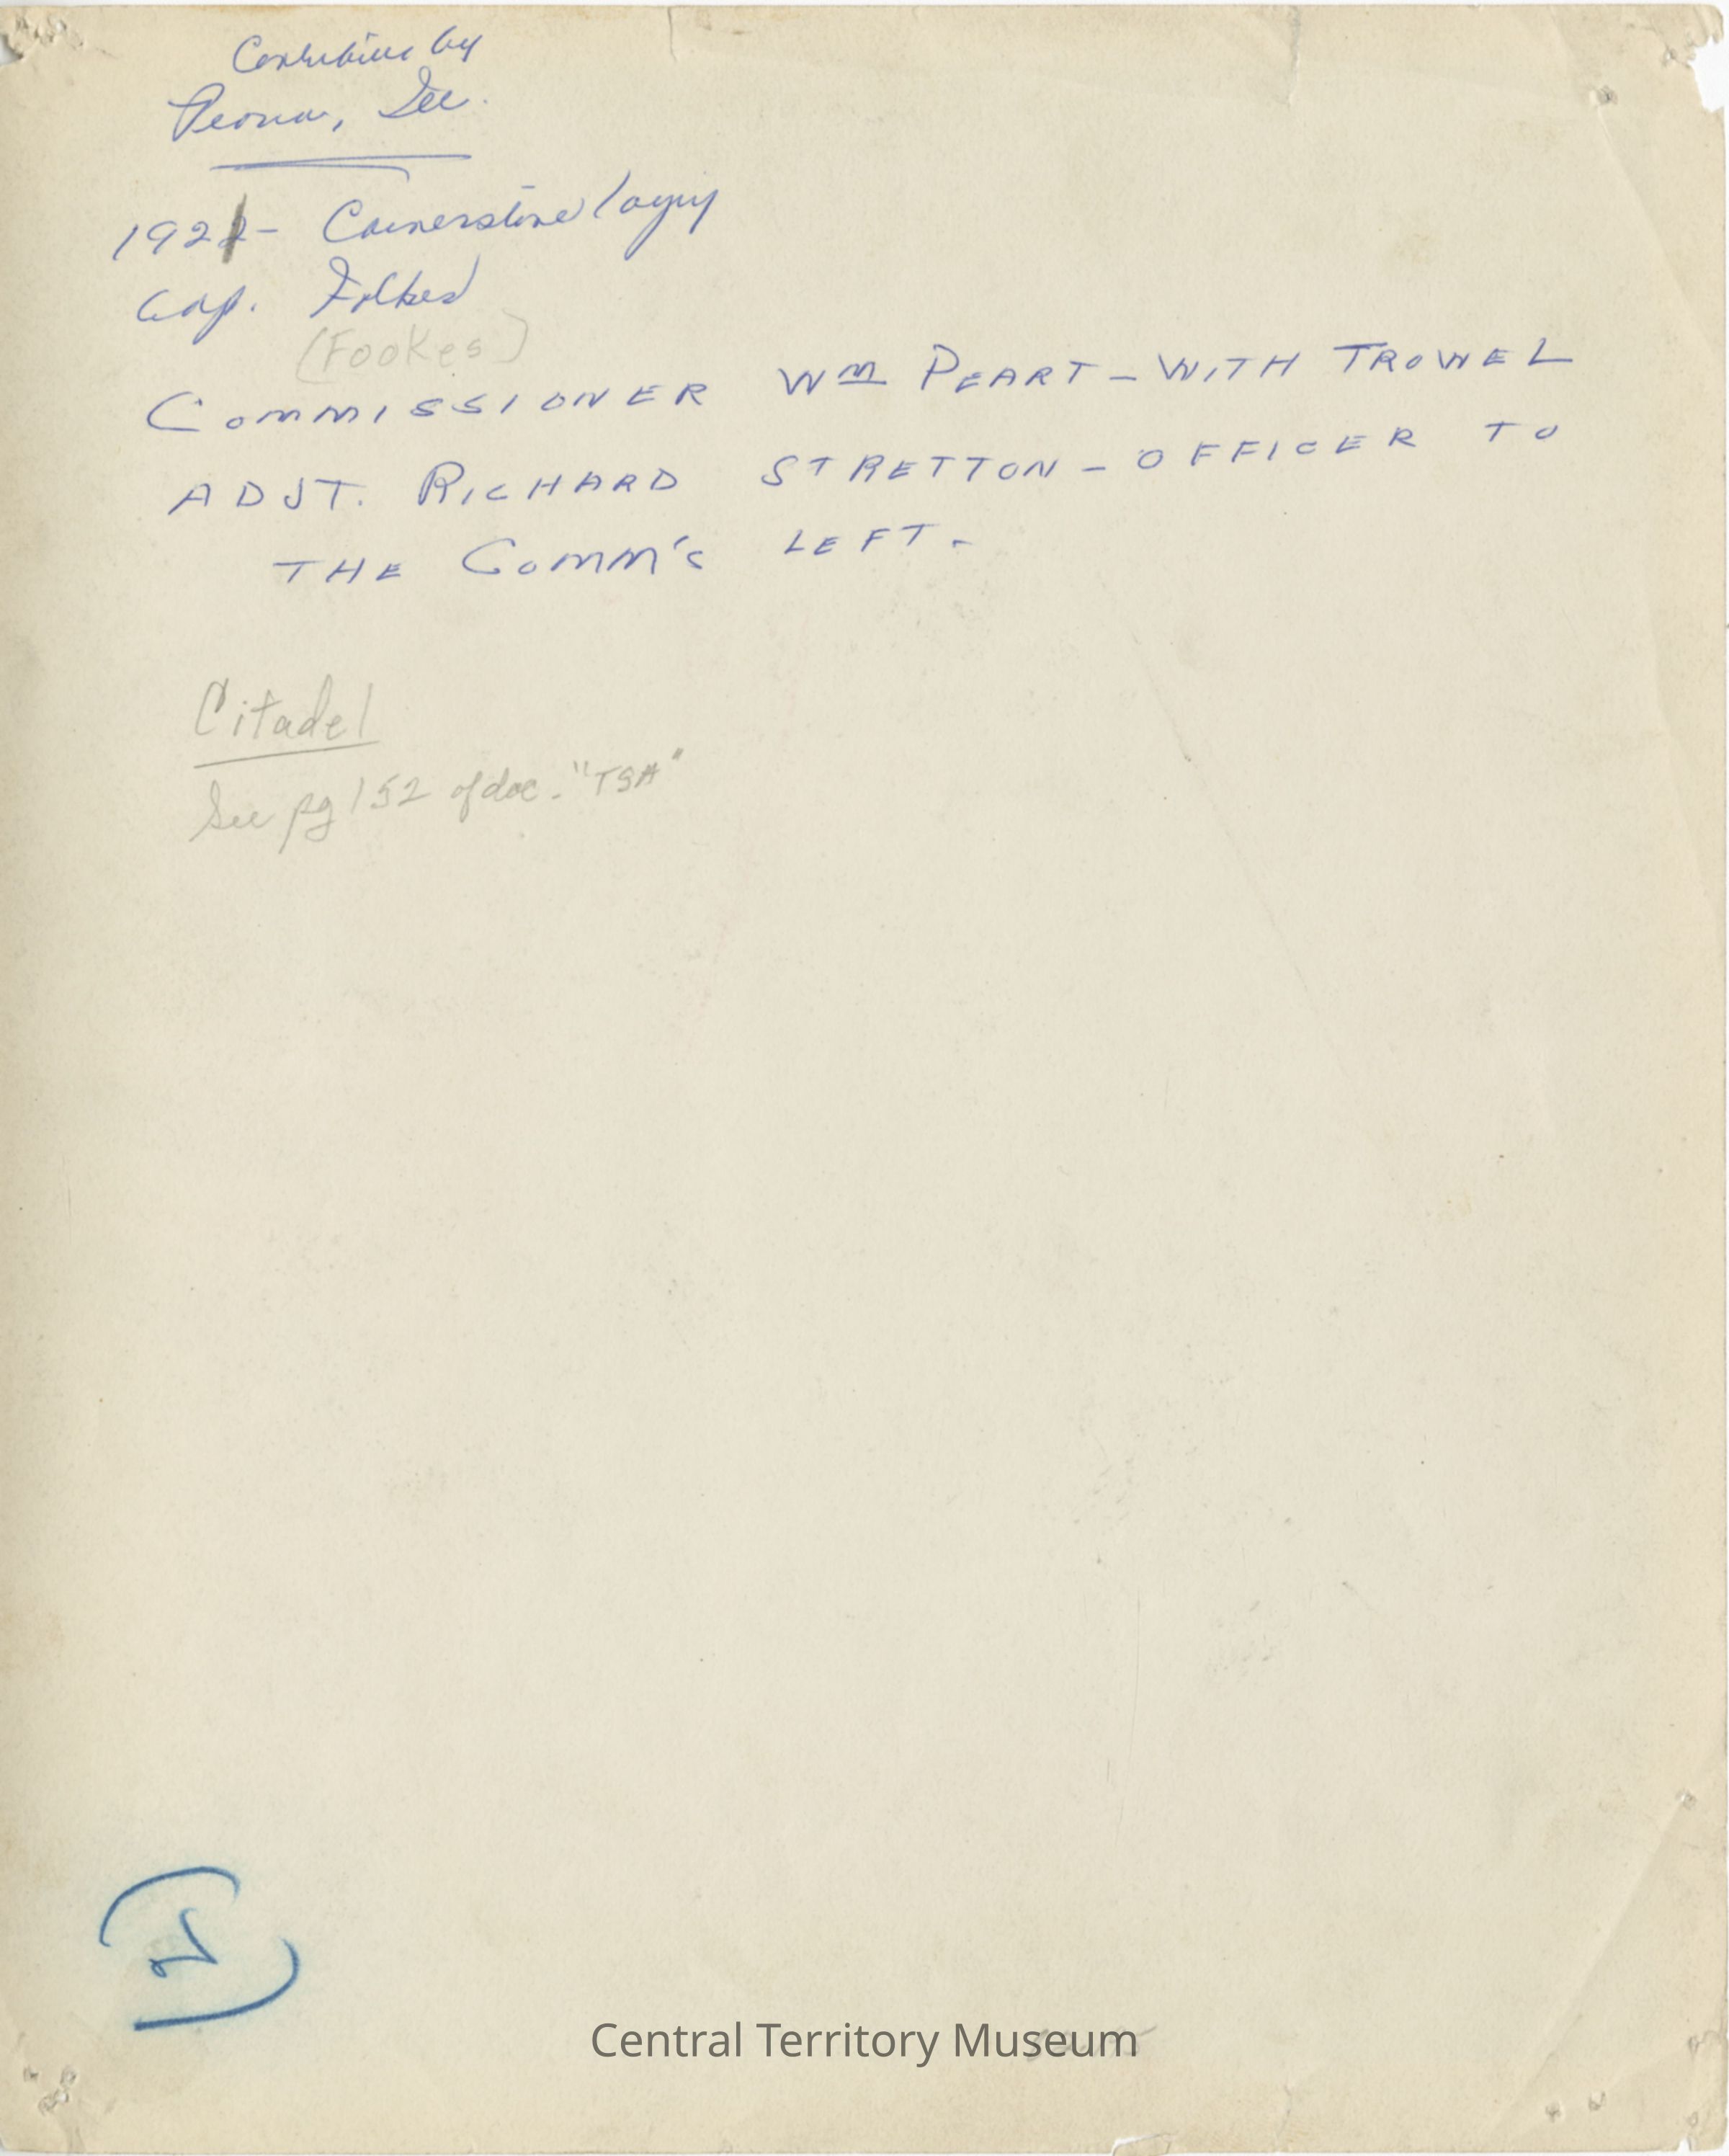 by
Peoria, Ill.
1921 - Cornerstone laying
Cap. Folkes
(Fookes)
COMMISSIONER Wm PEART - WITH TROWEL
ADJT. RICHARD STRETTON - OFFICER TO
THE COMM'S LEFT.
Citadel
See pg 152 of doc. "TSA"
2
Central Territory Museum